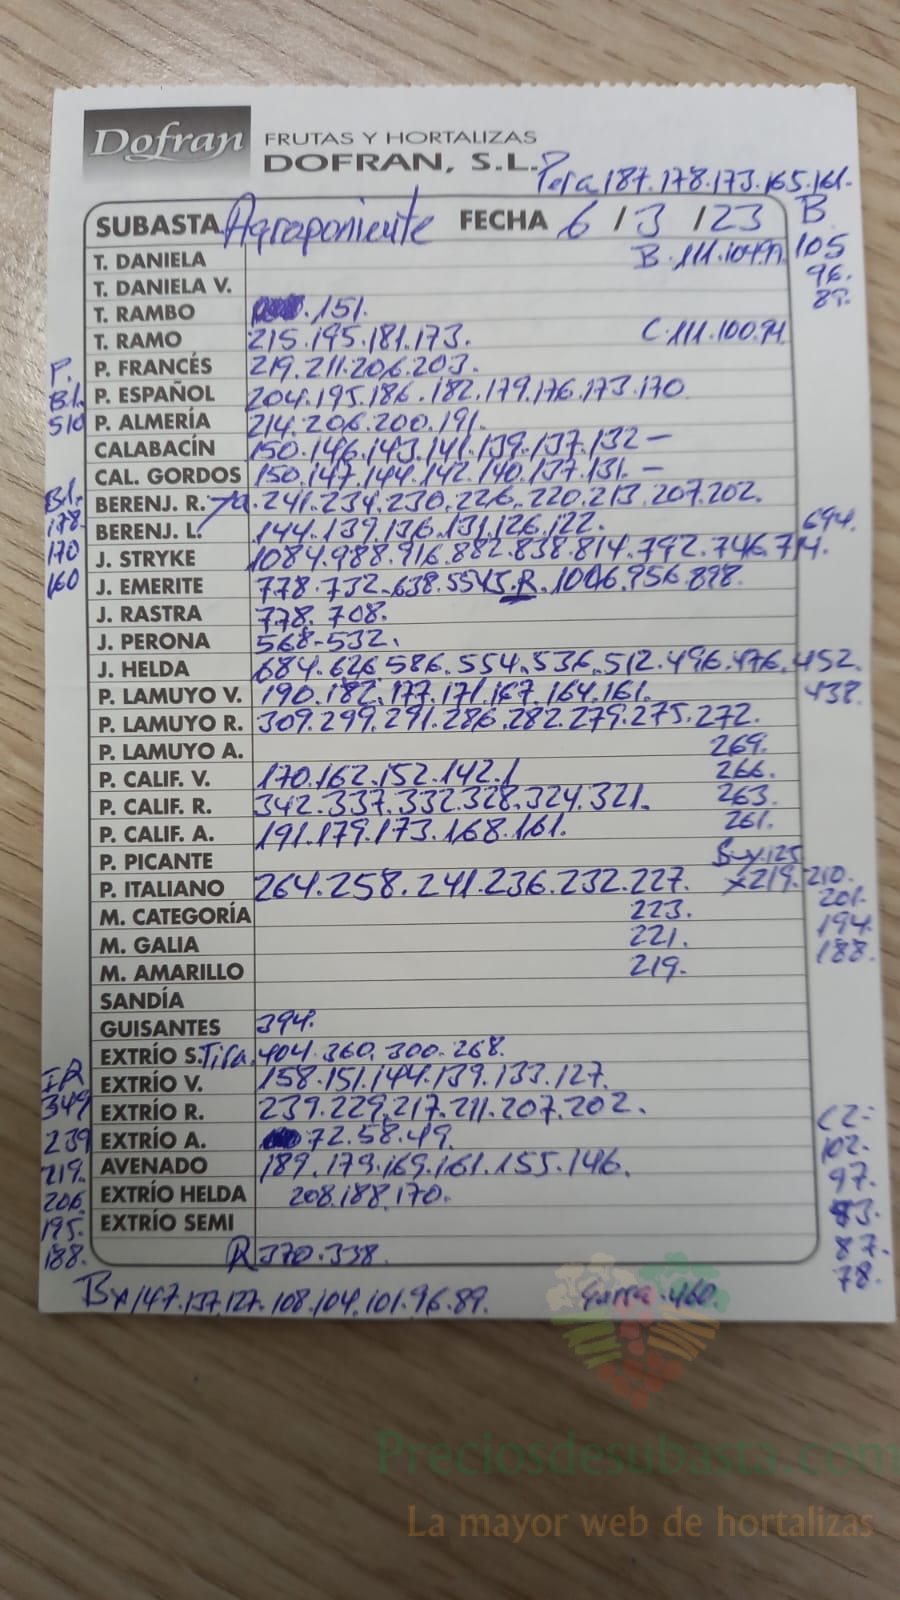 Dofran FRUTAS Y HORTALIZAS
DOFRAN, S.L.
Pera 187.178.173.165.161.
SUBASTA Agraponiente FECHA 6 / 3 / 23 B
T. DANIELA B.111.104.97 105
T. DANIELA V. 96.
T. RAMBO .151. 87.
T. RAMO 215.195.181.173. C.111.100.94
P. FRANCÉS 219.211.206.203.
P. Bl. 510
P. ESPAÑOL 204.195.186.182.179.176.173.170
P. ALMERÍA 214.206.200.191.
CALABACÍN 150.146.143.141.139.137.132 –
CAL. GORDOS 150.147.144.142.140.137.131. –
BERENJ. R. 241.234.230.226.220.213.207.202.
Bl. 178. 170 160
BERENJ. L. 144.139.136.131.126.122. 694.
J. STRYKE 1084.988.916.882.838.814.792.746.714.
J. EMERITE 778.732.638. R.1006.956.898.
J. RASTRA 778.708.
J. PERONA 568-532.
J. HELDA 684.626.586.554.536.512.496.476.452.
438.
P. LAMUYO V. 190.182.177.171.167.164.161.
P. LAMUYO R. 309.299.291.286.282.279.275.272.
P. LAMUYO A. 269.
P. CALIF. V. 170.162.152.142. 266.
P. CALIF. R. 342.337.332.328.324.321. 263.
P. CALIF. A. 191.179.173.168.161. 261.
P. PICANTE
P. ITALIANO 264.258.241.236.232.227. x219.210.
M. CATEGORÍA 223. 201.
M. GALIA 221. 194.
M. AMARILLO 219. 188.
SANDÍA
GUISANTES 394.
EXTRÍO S. Tira.404.360.300.268.
EXTRÍO V. 158.151.144.139.133.127.
EXTRÍO R. 239.229.217.211.207.202.
EXTRÍO A. 72.58.49.
AVENADO 189.179.169.161.155.146.
EXTRÍO HELDA 208.188.170.
EXTRÍO SEMI
349
239
219.
206.
195.
188.
CZ:
102.
97.
87.
78.
R 370.338.
Bx147.137.127.108.104.101.96.89. Garra.460.
Preciosdesubasta.com
La mayor web de hortalizas